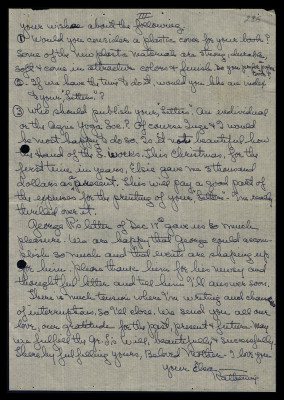 III
your wishes about the following
① Would you consider a plastic cover for your book?
Some of the new plastic materials are strong, durable,
soft & come in attractive colors & finish. Do you prefer
② If we have the time to do it, would you like an index
to your "Letters"?
③ Who should publish your "Letters". An individual
or the Agni Yoga Soc.? Of course Inge & I would
be most happy to do so. Is it not beautiful how
Hand of the L. works. This Christmas, for the
first time in years, Elsie gave me a thousand
dollars as present, this will pay a good part of
the expense for the printing of your "Letters". I'm really
thrilled over it.
George R's letter of Dec 11th gave us so much
pleasure. We are happy that George could accom-
plish so much and that events are shaping up
for him. Please thank him for his newsy and
thoughtful letter and tell him I'll answer soon.
There is much tension where I'm writing and chance
of interruption, so I'll close. We send you all our
love, our gratitude for the past, present & future. May
we fulfill the Gr. L's Will, beautifully & successfully,
thereby fulfilling yours, Beloved Mother. I love you
Your Ever
Katherine